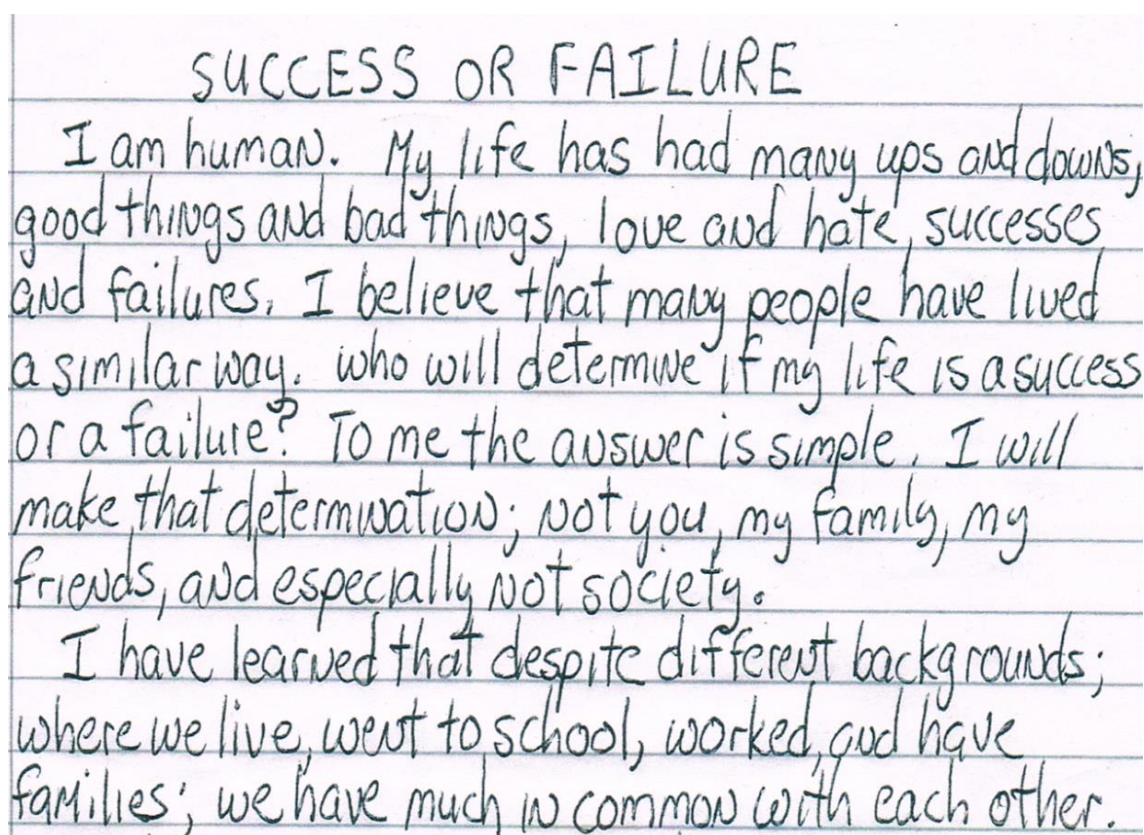 SUCCESS OR FAILURE
I am human. My life has had many ups and downs,
good things and bad things, love and hate, successes
and failures. I believe that many people have lived
a similar way. who will determine if my life is a success
or a failure? To me the answer is simple. I will
make that determination; not you, my family, my
friends, and especially not society.
I have learned that despite different backgrounds;
where we live, went to school, worked, and have
families; we have much in common with each other.